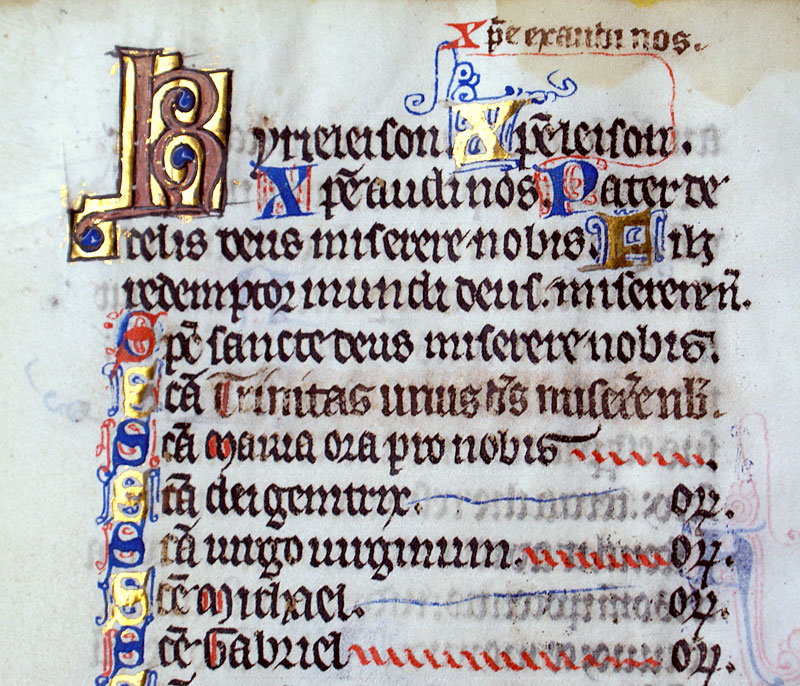 Xp̄e exaudi nos.
Kyrieleison Xp̄eleison.
Xp̄e audi nos Pater de
celis deus miserere nobis. Fili
redemptor mundi deus. miserere n̄.
Sp̄e sancte deus miserere nobis.
Scā Trinitas unus ds̄ miserē nb̄.
Scā maria ora pro nobis
Scā dei genitrix. or.
Scā uirgo uirginum. or.
Scē Michael. or.
Scē Gabriel or.